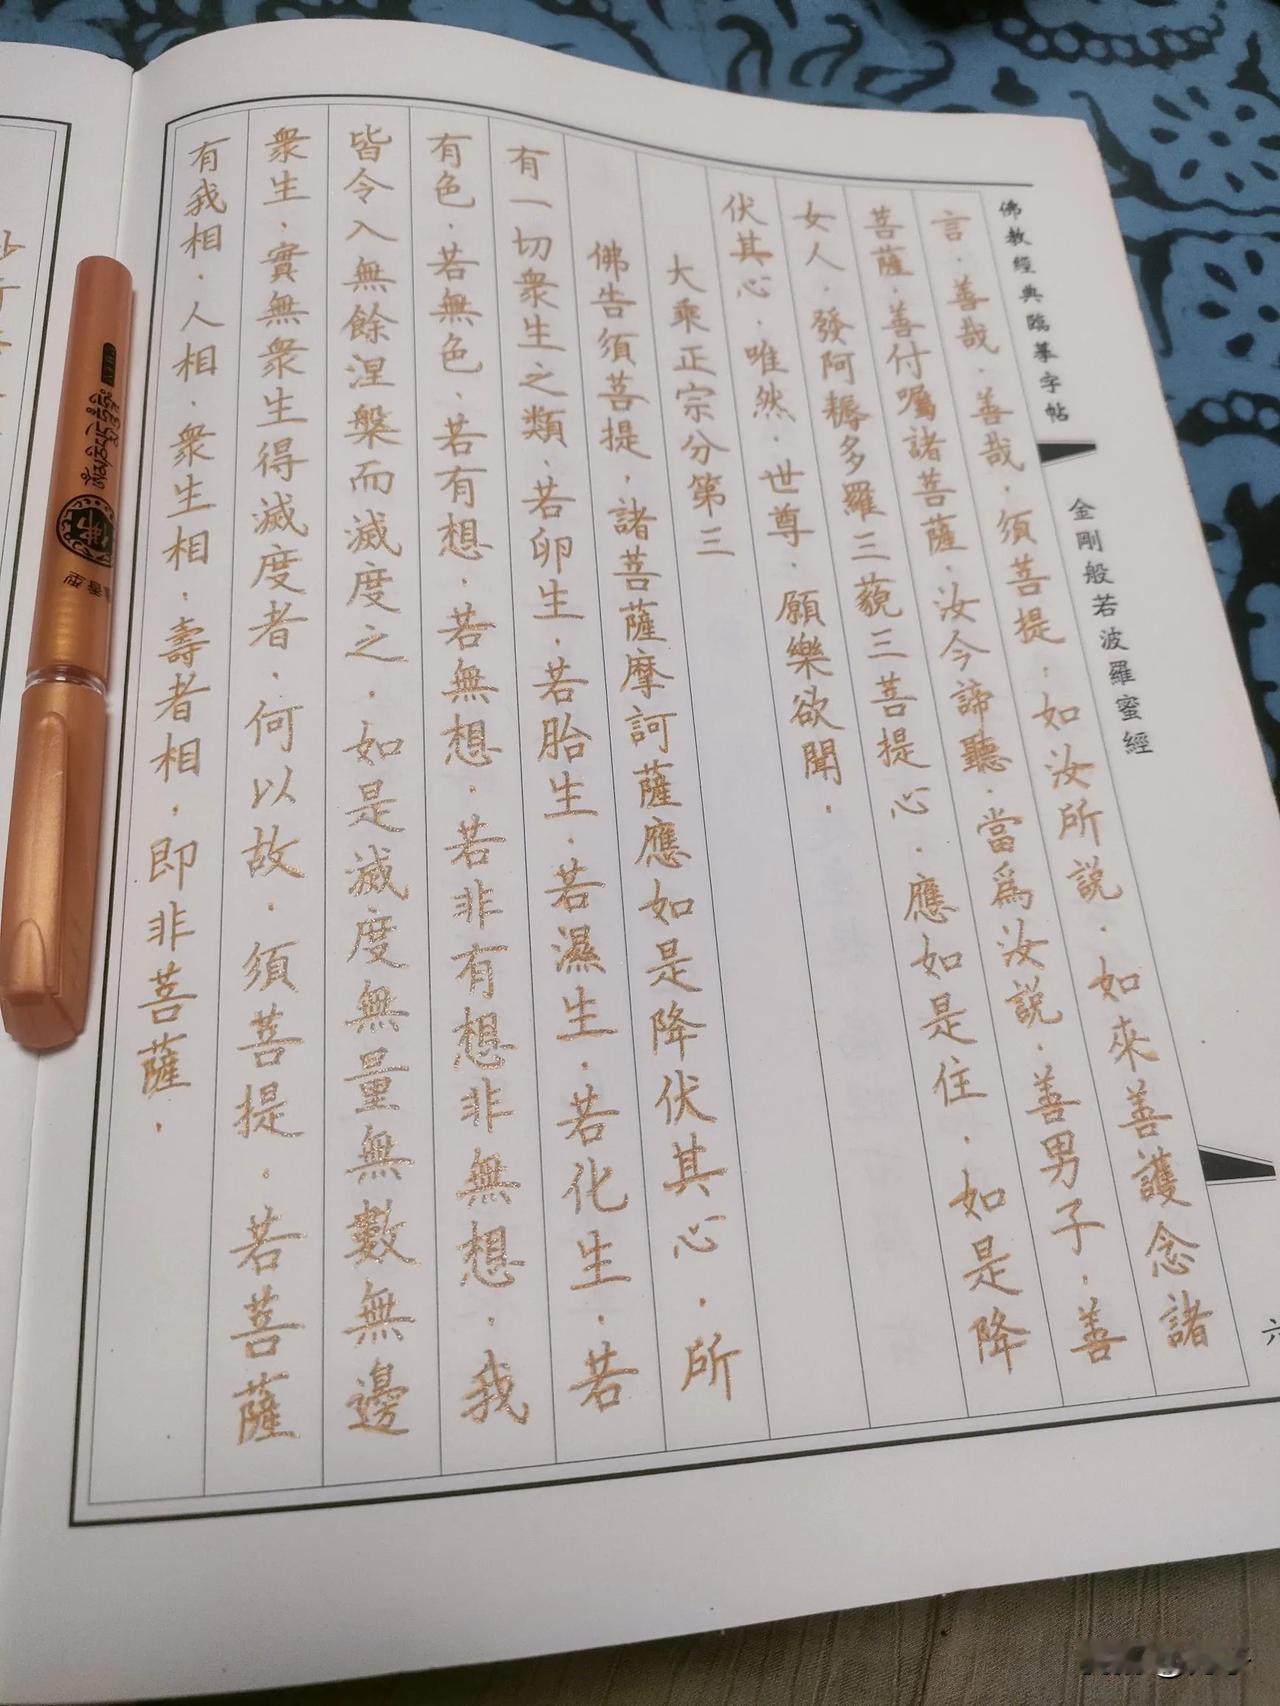 佛教經典臨摹字帖
金剛般若波羅蜜經
六
言.善哉.善哉.須菩提.如汝所説.如來善護念諸
菩薩.善付囑諸菩薩.汝今諦聽.當爲汝説.善男子.善
女人.發阿耨多羅三藐三菩提心.應如是住.如是降
伏其心.唯然.世尊.願樂欲聞.
大乘正宗分第三
佛告須菩提.諸菩薩摩訶薩應如是降伏其心.所
有一切衆生之類.若卵生.若胎生.若濕生.若化生.若
有色.若無色.若有想.若無想.若非有想非無想.我
皆令入無餘涅槃而滅度之.如是滅度無量無數無邊
衆生.實無衆生得滅度者.何以故.須菩提.若菩薩
有我相.人相.衆生相.壽者相.即非菩薩.